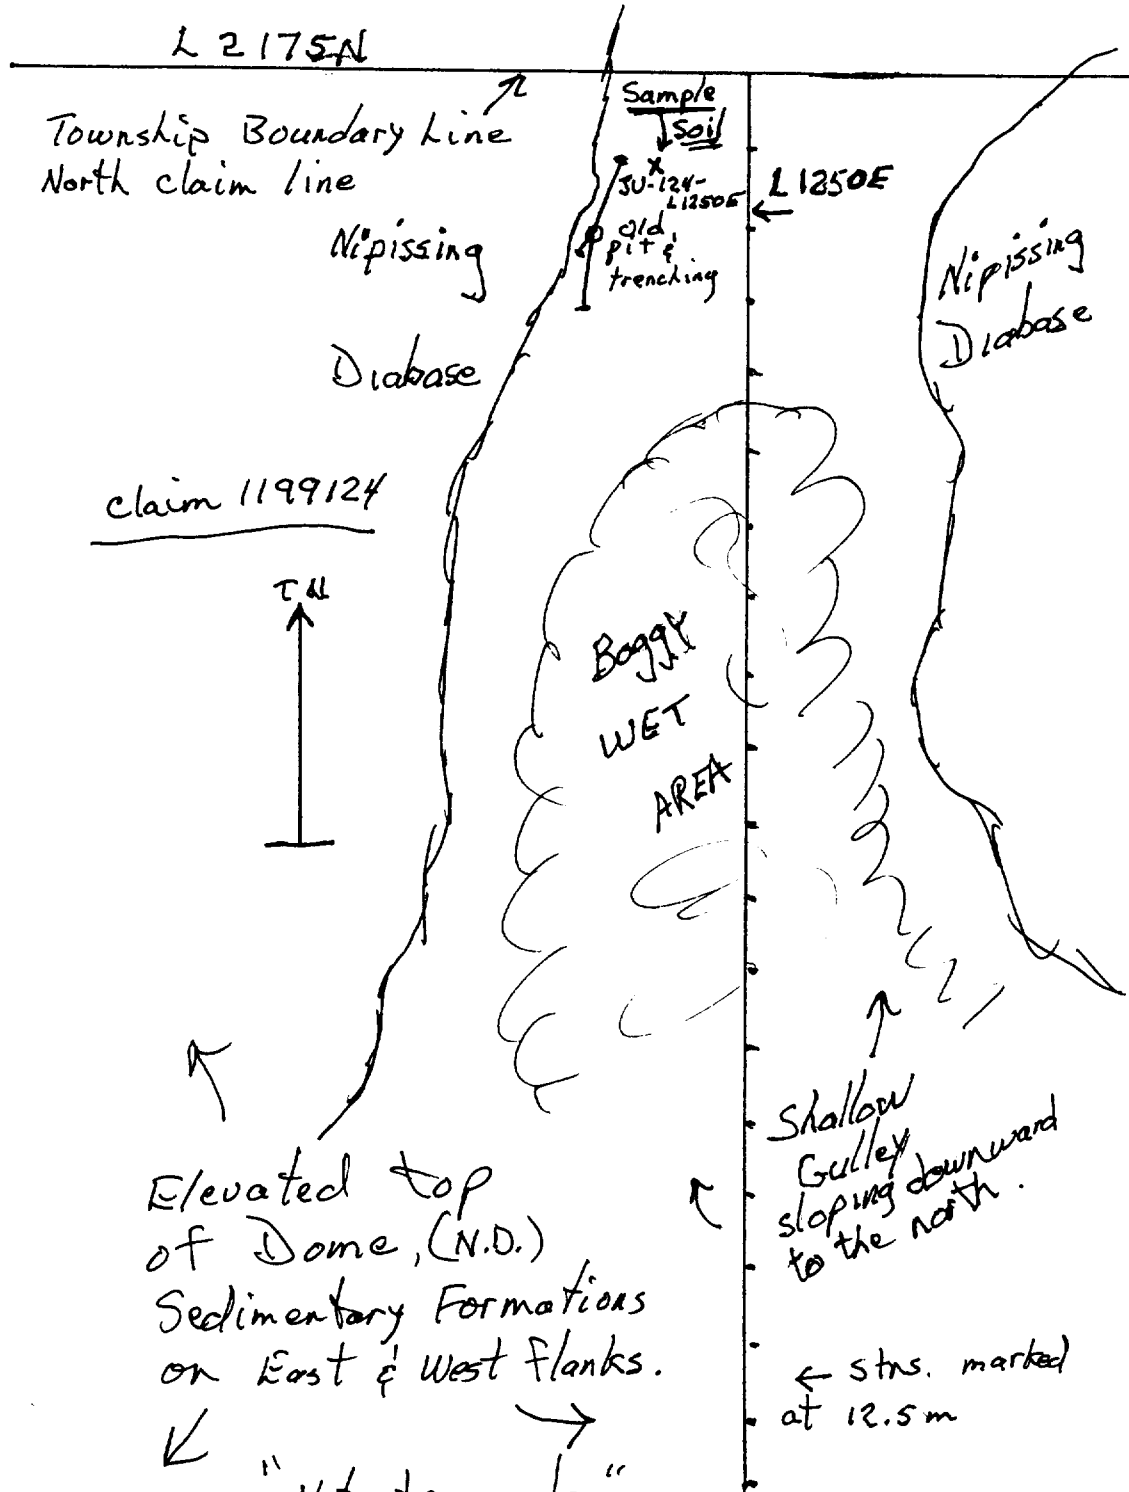 L 2175N
Township Boundary Line
North claim line
Sample
Soil
x
JU-124-
L1250E
L 1250E
old
pit &
trenching
Nipissing
Diabase
Nipissing
Diabase
claim 1199124
TN
Boggy
WET
AREA
Shallow
Gulley
sloping downward
to the north.
Elevated top
of Dome, (N.D.)
Sedimentary Formations
on East & West flanks.
← stns. marked
at 12.5 m